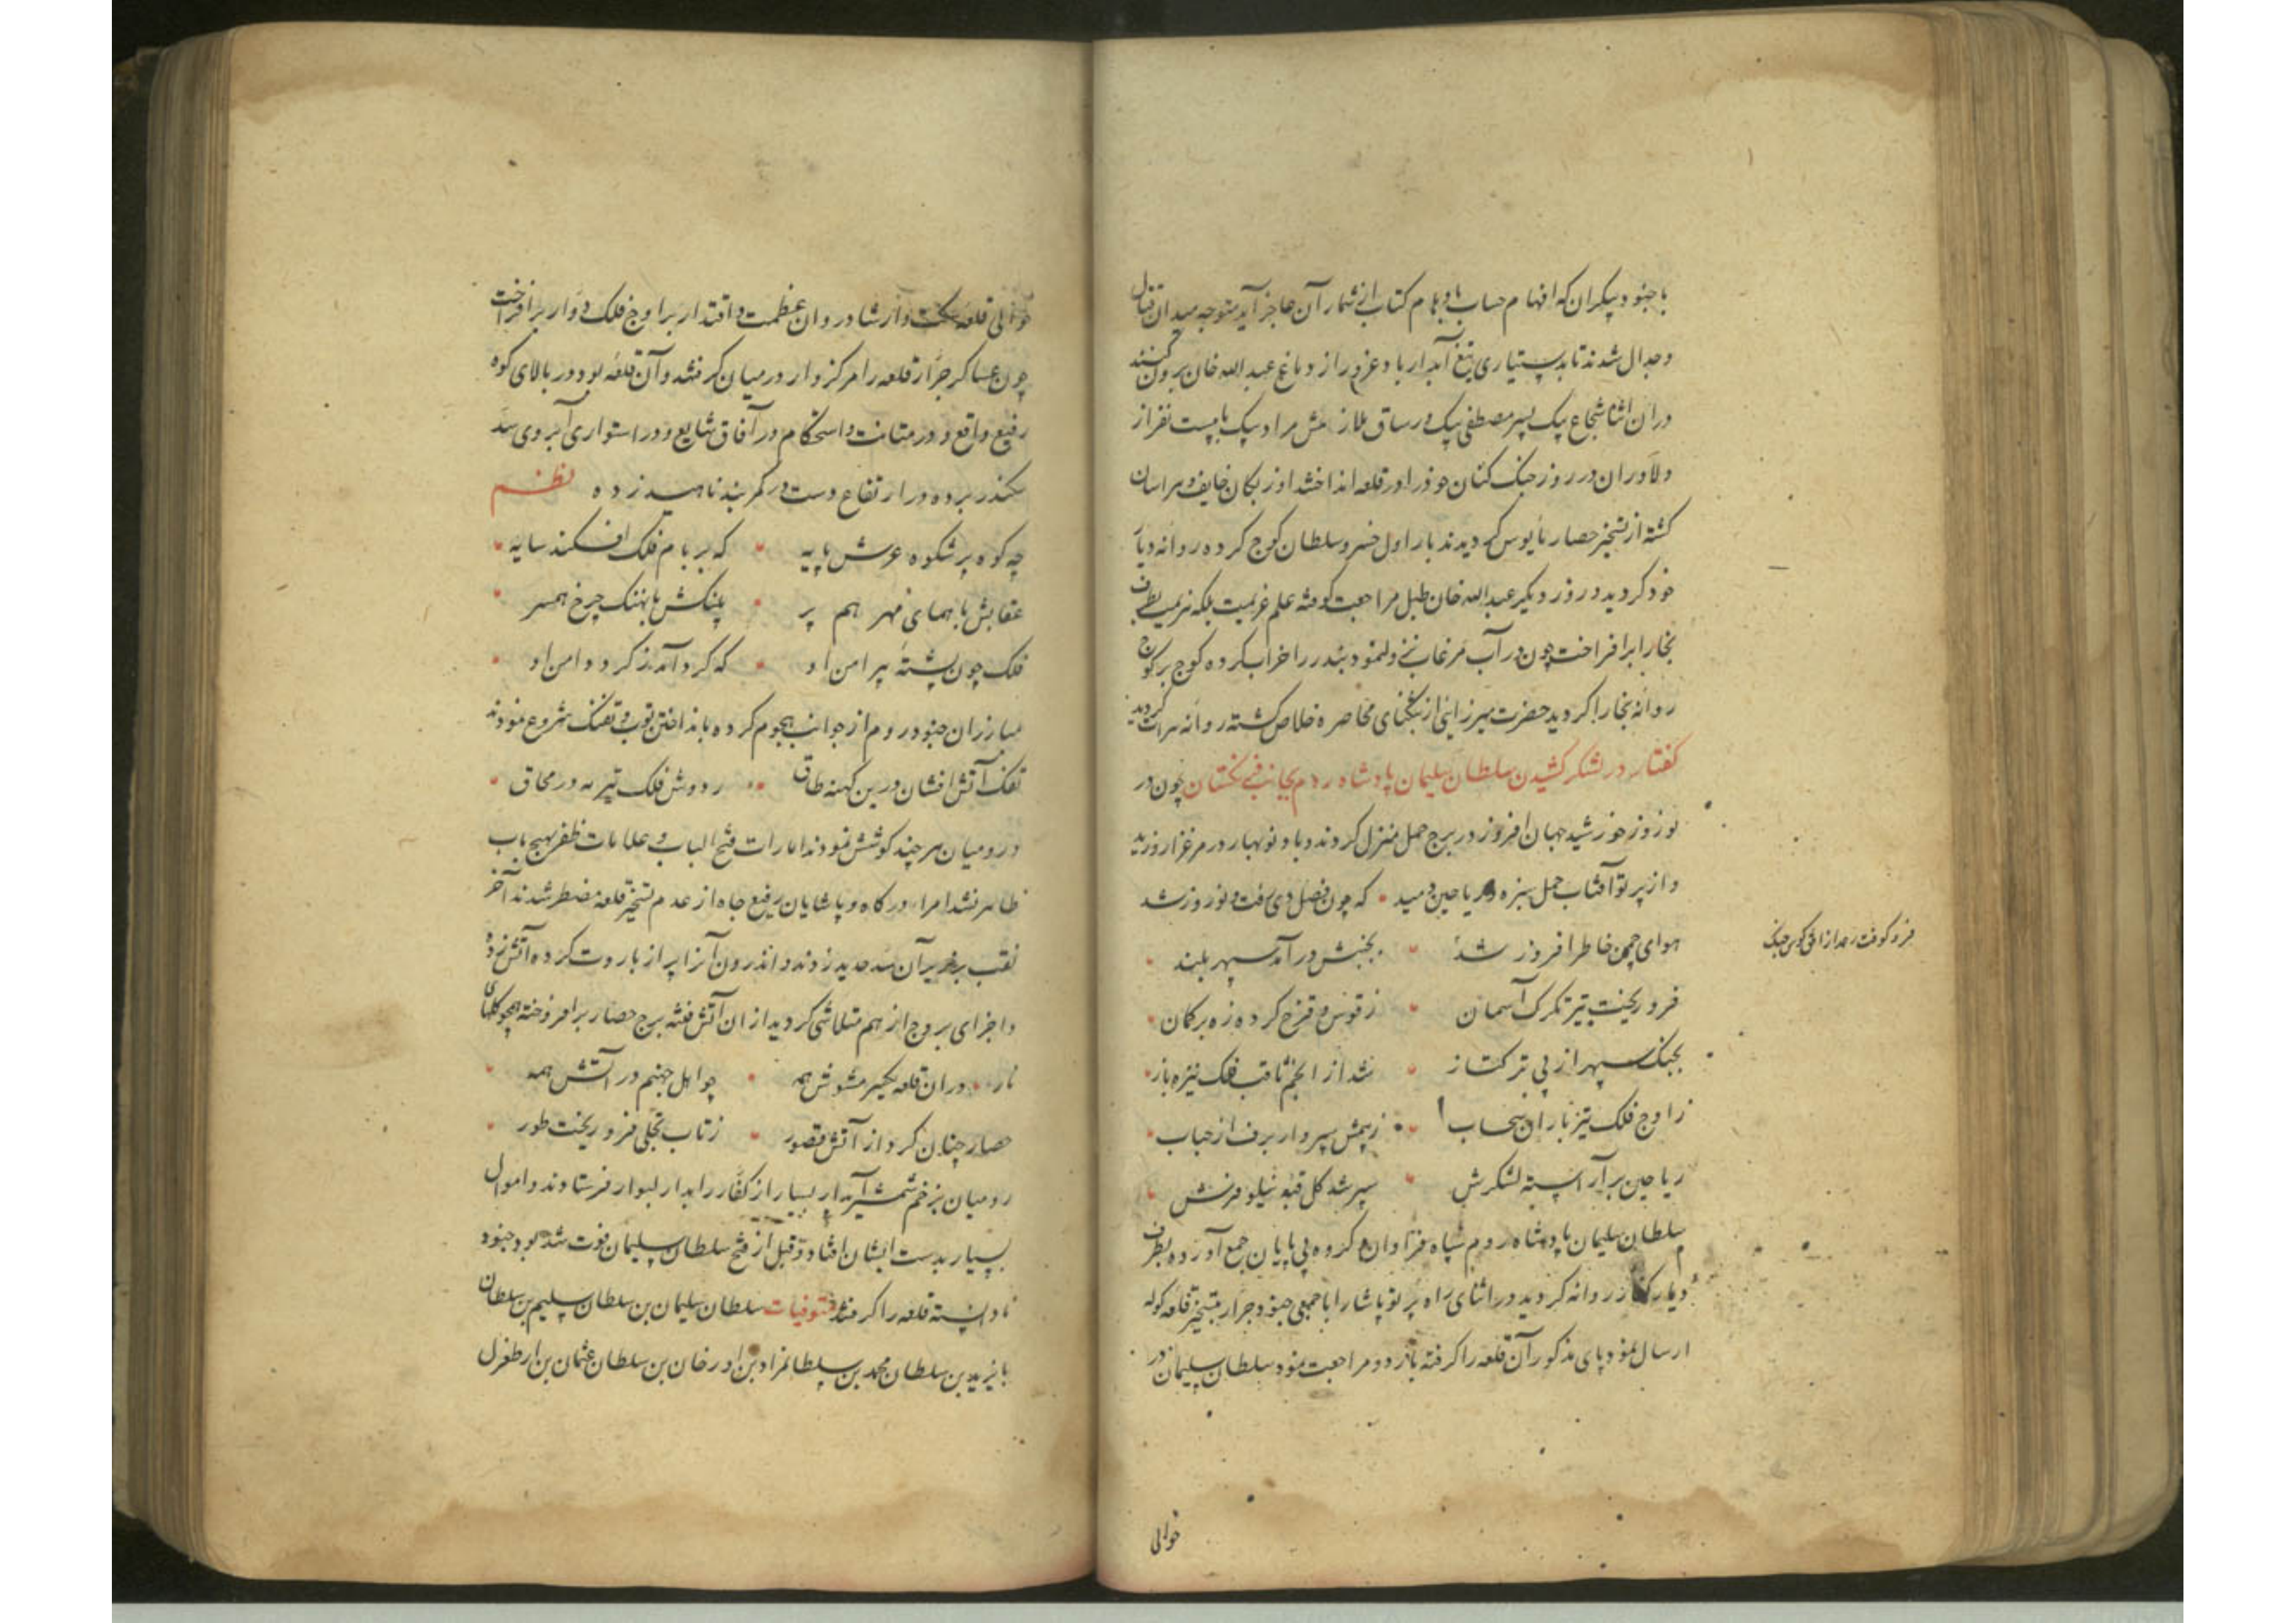 با جنود بیکران که افهام حساب و اوهام کتاب از شمار آن عاجز آید متوجه میدان قتال
و جدال شدند تا بدستیاری تیغ آبدار باد غرور از دماغ عبدالله خان بیرون کنند
در آن اثنا شجاع بیک پسر مصطفی بیک ورساق ملازمش مراد بیک با بیست نفر از
دلاوران در روز جنک کنان خود را در قلعه انداختند اوزبکان خایف و هراسان
کشته از تسخیر حصار مأیوس کردیدند بار اول خسرو سلطان کوچ کرده روانه دیار
خود کردید و روز دیکر عبدالله خان طبل مراجعت کوفته علم عزیمت بلکه هزیمت بطرف
بخارا برافراخت چون در آب مرغاب نزول نمود بندر را خراب کرده کوچ بر کوچ
روانه بخارا کردید حضرت میرزایی از تنکنای محاصره خلاص کشته روانه هرات کردید
کفتار در لشکر کشیدن سلطان سلیمان پادشاه روم بجانب فرنکستان چون در
نوروز خورشید جهان افروز در برج حمل منزل کردند و باد نوبهار در مرغزار وزید
و از پرتو آفتاب حمل سبزه و ریاحین دمید که چون فصل دی رفت و نوروز شد
هوای چمن خاطر افروز شد بجنبش درآمد سپهر بلند
فرو کوفت رعد از افق کوس جنک
فرو ریخت تیر تکرک آسمان ز قوس قزح کرده زه بر کمان
بجنک سپهر از پی ترکتاز شد از انجم ثاقب فلک نیزه باز
ز اوج فلک تیر باران سحاب ز بیمش سپر وار برف از حباب
ریاحین برآراسته لشکرش سپر شد کل قبه نیلوفرش
سلطان سلیمان پادشاه روم سپاه فراوان و کروه بی پایان جمع آورده بطرف
دیار کفار روانه کردید در اثنای راه پرتو پاشا را با جمعی جنود جرار بتسخیر قلعه کوله
ارسال نمود پاشای مذکور آن قلعه را کرفته باردو مراجعت نمود سلطان سلیمان در
حوالی
حوالی قلعه سکتوار شادروان عظمت و اقتدار بر اوج فلک دوار برافراخت
چون عساکر جرار قلعه را مرکزوار در میان کرفتند و آن قلعه بود در بالای کوه
رفیع واقع و در متانت و استحکام در آفاق شایع و در استواری آبروی سد
سکندر برده و در ارتفاع دست در کمربند ناهید زده نظم
چه کوه پر شکوه عرش پایه که بر بام فلک افکند سایه
عقابش با همای مهر هم پر پلنکش با نهنک چرخ همسر
فلک چون پشته پیرامن او که کرد آمد ز کرد دامن او
مبارزان جنود روم از جوانب هجوم کرده بانداختن توپ و تفنک شروع نمودند
تفک آتش افشان درین کهنه طاق ز دودش فلک تیره مه در محاق
و رومیان هر چند کوشش نمودند امارات فتح الباب و علامات ظفر بهیچ باب
ظاهر نشد امراء درکاه و پاشایان رفیع جاه از عدم تسخیر قلعه مضطر شدند آخر
نقب بر زیر آن سد حدید زدند و اندرون آنرا پر از باروت کرده آتش زدند
و اجزای بروج از هم متلاشی کردید از ان آتش فتنه برج حصار برافروخته همچو کلهای
نار در ان قلعه یکسر مشوش همه چو اهل جهنم در آتش همه
حصار چنان کرد از آتش قصور ز تاب تجلی فرو ریخت طور
رومیان بزخم شمشیر آبدار بسیار از کفار را بدار البوار فرستادند و اموال
بسیار بدست ایشان افتاد و قبل از فتح سلطان سلیمان فوت شده بود جنود
نادانسته قلعه را کرفتند متوفیات سلطان سلیمان بن سلطان سلیم بن سلطان
بایزید بن سلطان محمد بن سلطان مراد بن اورخان بن سلطان عثمان بن ارطغرل